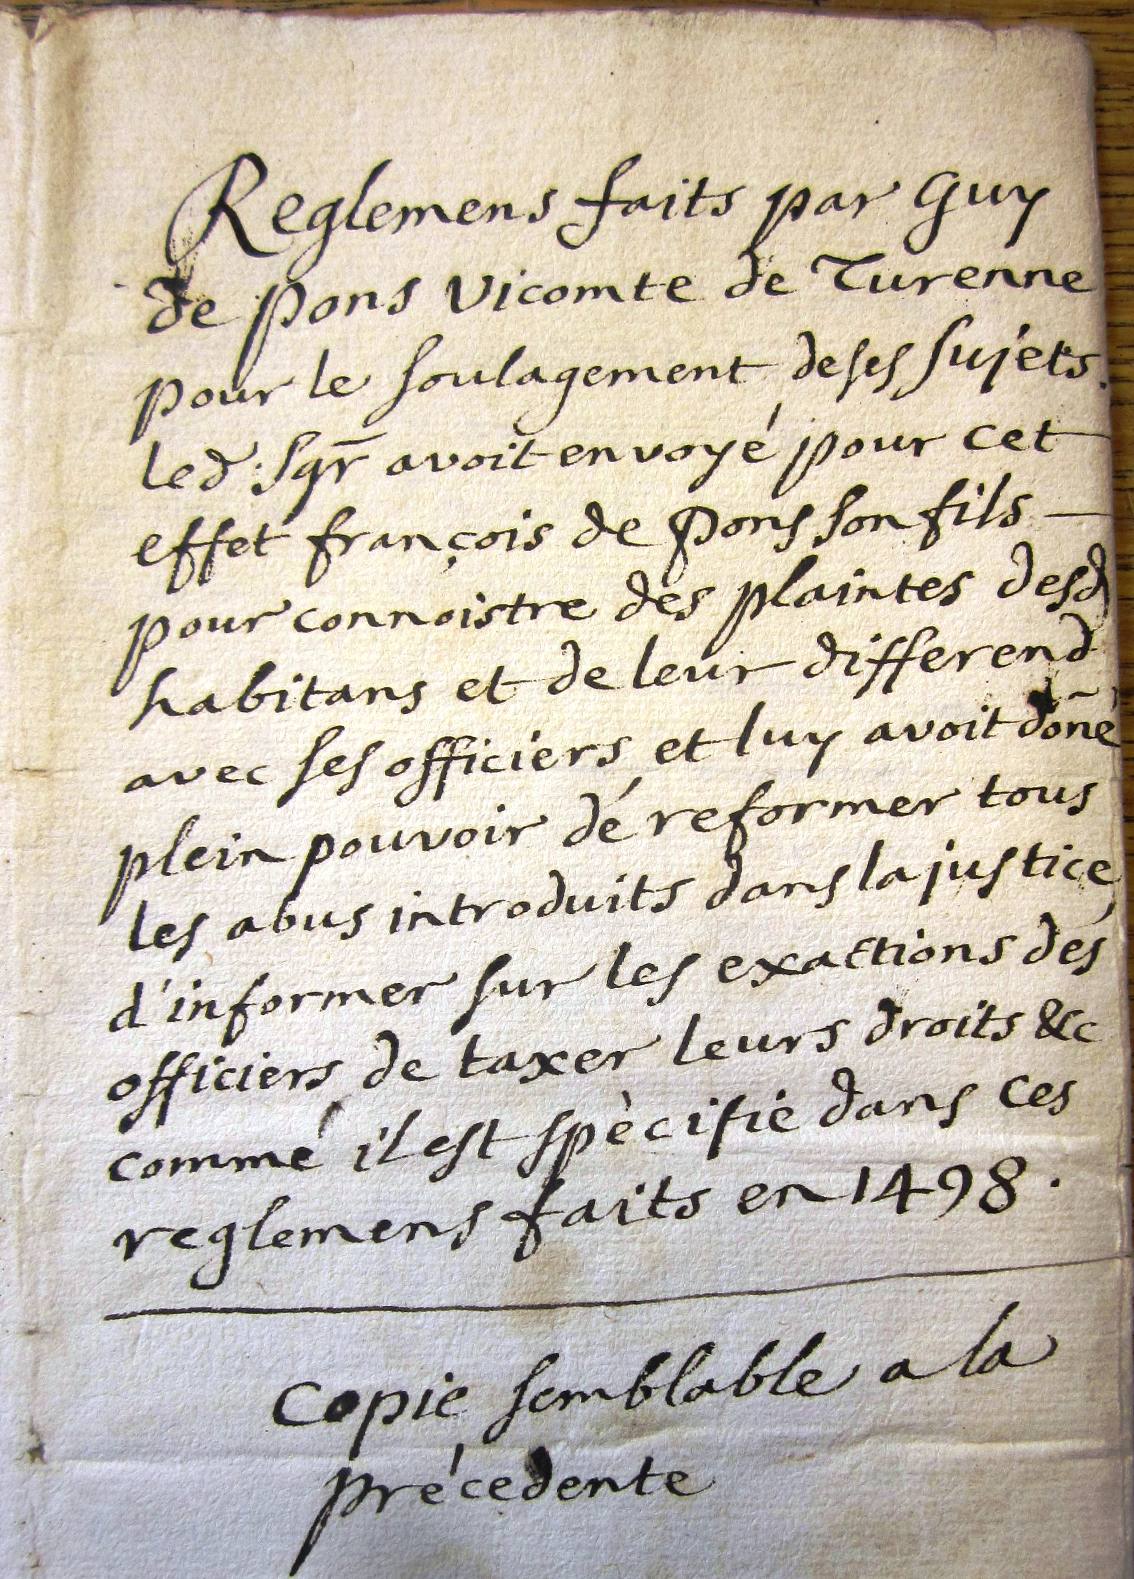 Reglemens faits par Guy
de pons vicomte de Turenne
pour le soulagement de ses sujets.
led: sgr avoit envoyé pour cet
effet françois de pons son fils —
pour connoistre des plaintes desd
habitans et de leur differend
avec ses officiers et luy avoit dõné
plein pouvoir dé reformer tous
les abus introduits dans la justice
d'informer sur les exactions dés
officiers de taxer leurs droits &c
commé il est spècifié dans ces
reglemens faits en 1498.
Copie semblable a la
précedente